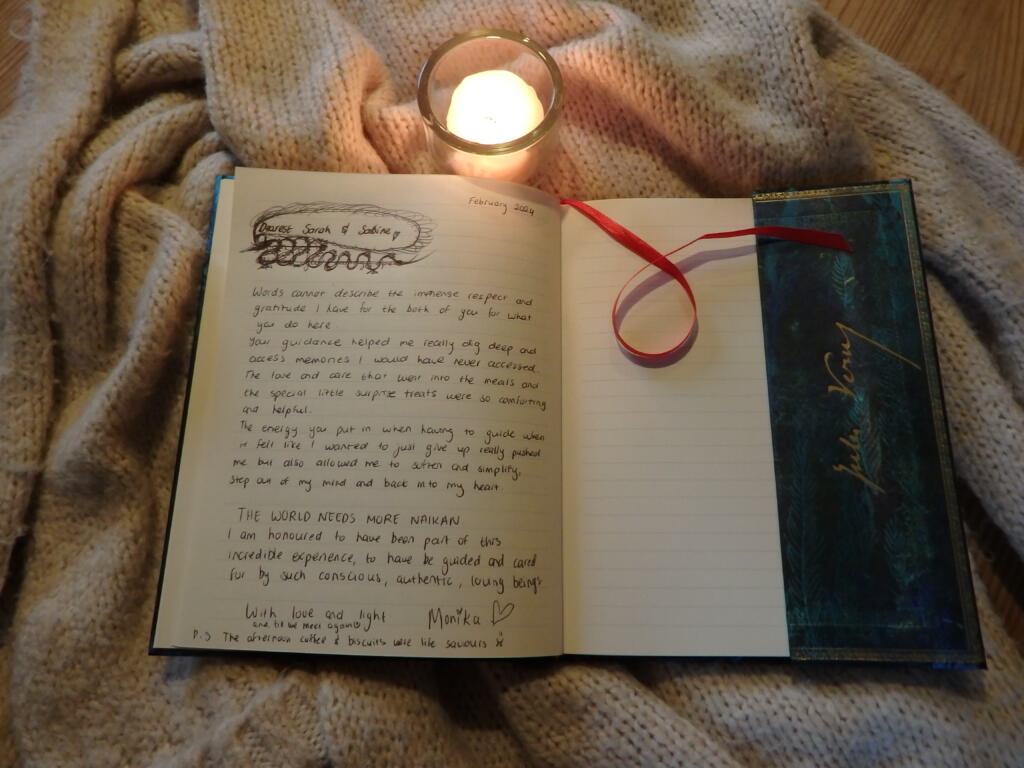 February 2024
Dearest Sarah & Sabine
Words cannot describe the immense respect and
gratitude I have for the both of you for what
you do here.
Your guidance helped me really dig deep and
access memories I would have never accessed.
The love and care that went into the meals and
the special little surprise treats were so comforting
and helpful.
The energy you put in when having to guide when
it felt like I wanted to just give up really pushed
me but also allowed me to soften and simplify,
step out of my mind and back into my heart.
THE WORLD NEEDS MORE NAIKAN
I am honoured to have been part of this
incredible experience, to have be guided and cared
for by such conscious, authentic, loving beings
With love and light
and till we meet again
Monika
P.S The afternoon coffee & biscuits were life saviours
Jules Verne